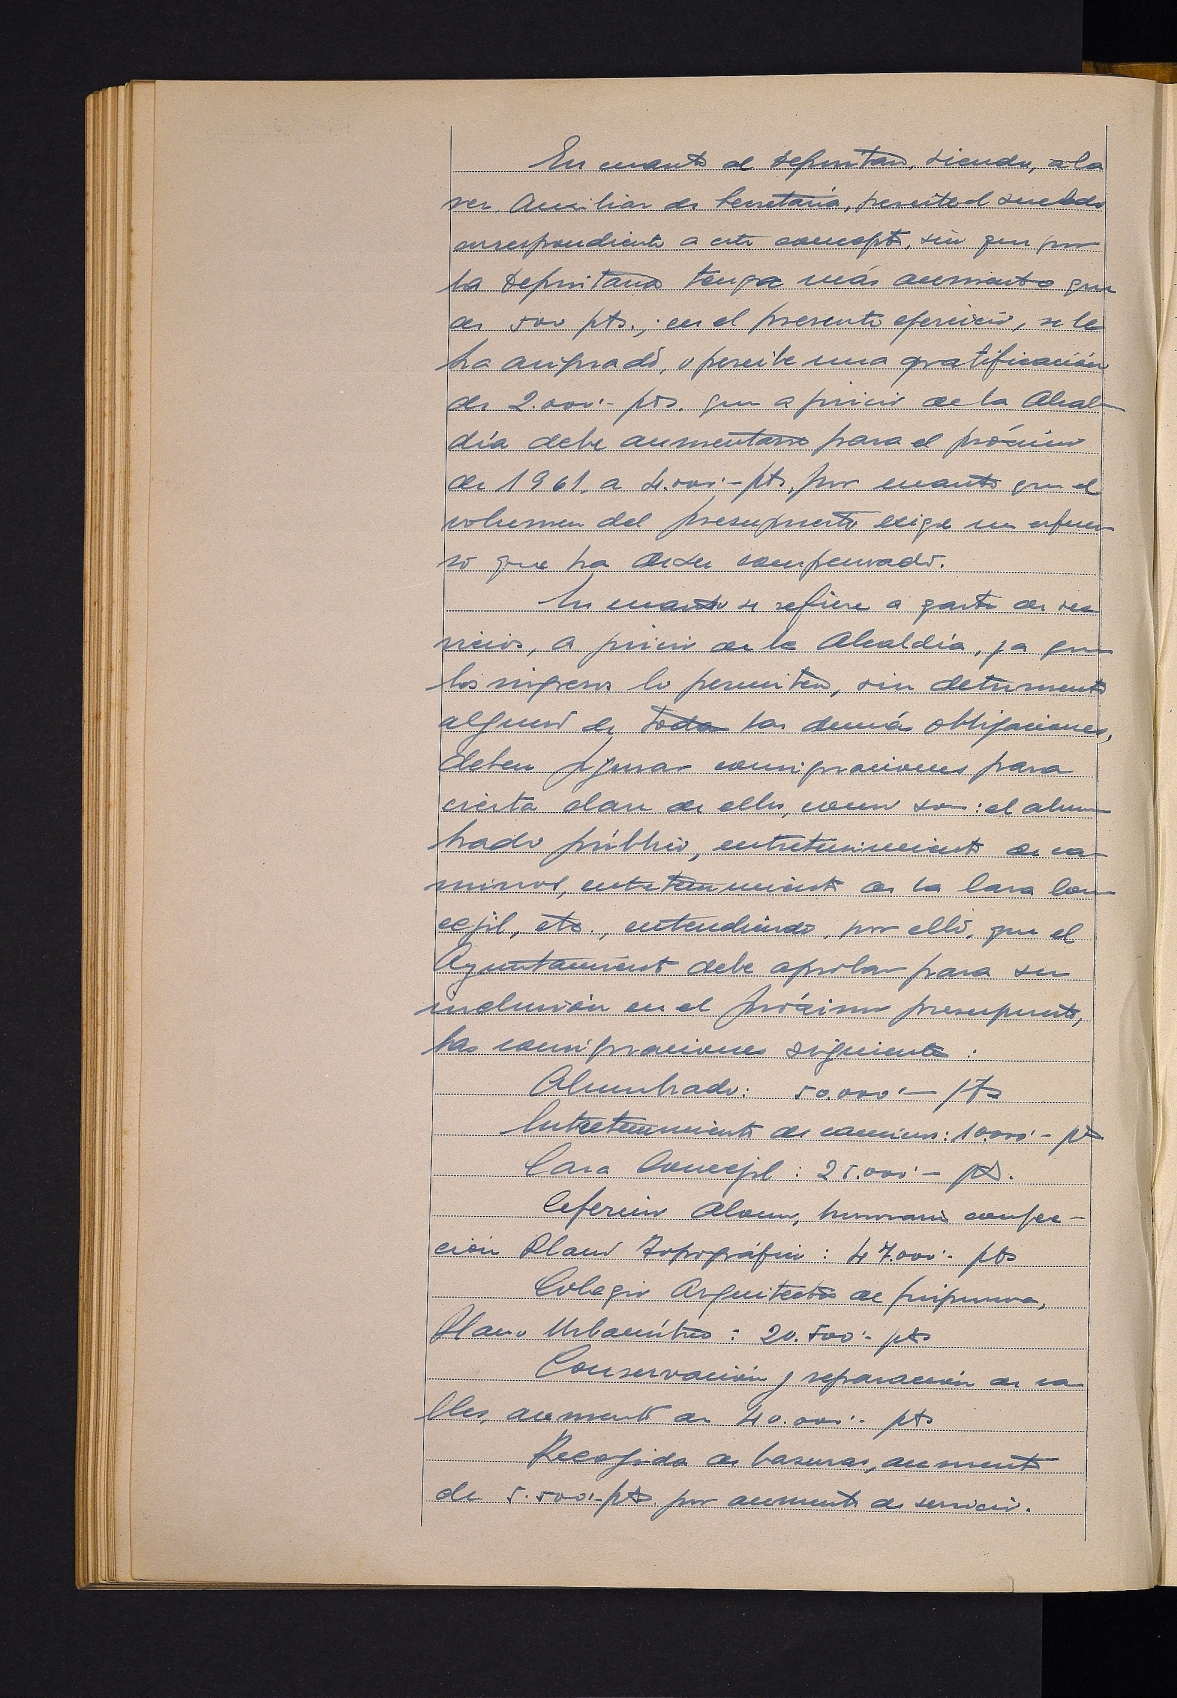 En cuanto al Depositario, siendo, a la
vez, Auxiliar de Secretaría, percibe el sueldo
correspondiente a este concepto, sin que por
la Depositaria tenga más aumento que
de 500 pts.; en el presente ejercicio, se le
ha asignado, y percibe una gratificación
de 2.000'- pts. que a juicio de la Alcal-
día debe aumentarse para el próximo
de 1961, a 4.000'- pts. por cuanto que el
volumen del presupuesto exige un esfuer-
zo que ha de ser compensado.
En cuanto se refiere a gasto de ser-
vicios, a juicio de la Alcaldía, ya que
los ingresos lo permiten, sin detrimento
alguno de todas las demás obligaciones,
deben figurar consignaciones para
cierta clase de ellos, como son: el alum-
brado público, entretenimiento de ca-
minos, entretenimiento de la Casa Con-
cejil, etc., entendiendo, por ello, que el
Ayuntamiento debe aprobar para su
inclusión en el próximo presupuesto,
las consignaciones siguientes:
Alumbrado: 50.000'- pts
Entretenimiento de caminos: 10.000'- pts
Casa Concejil: 25.000'- pts.
Ceferino honorarios confec-
ción Plano Topográfico: 47.000'- pts
Colegio Arquitectos de Guipuzcoa,
Plano Urbanístico: 20.500'- pts
Conservación y reparación de ca-
lles, aumento de 40.000'- pts
Recogida de basuras, aumento
de 5.500'- pts. por aumento de servicio.